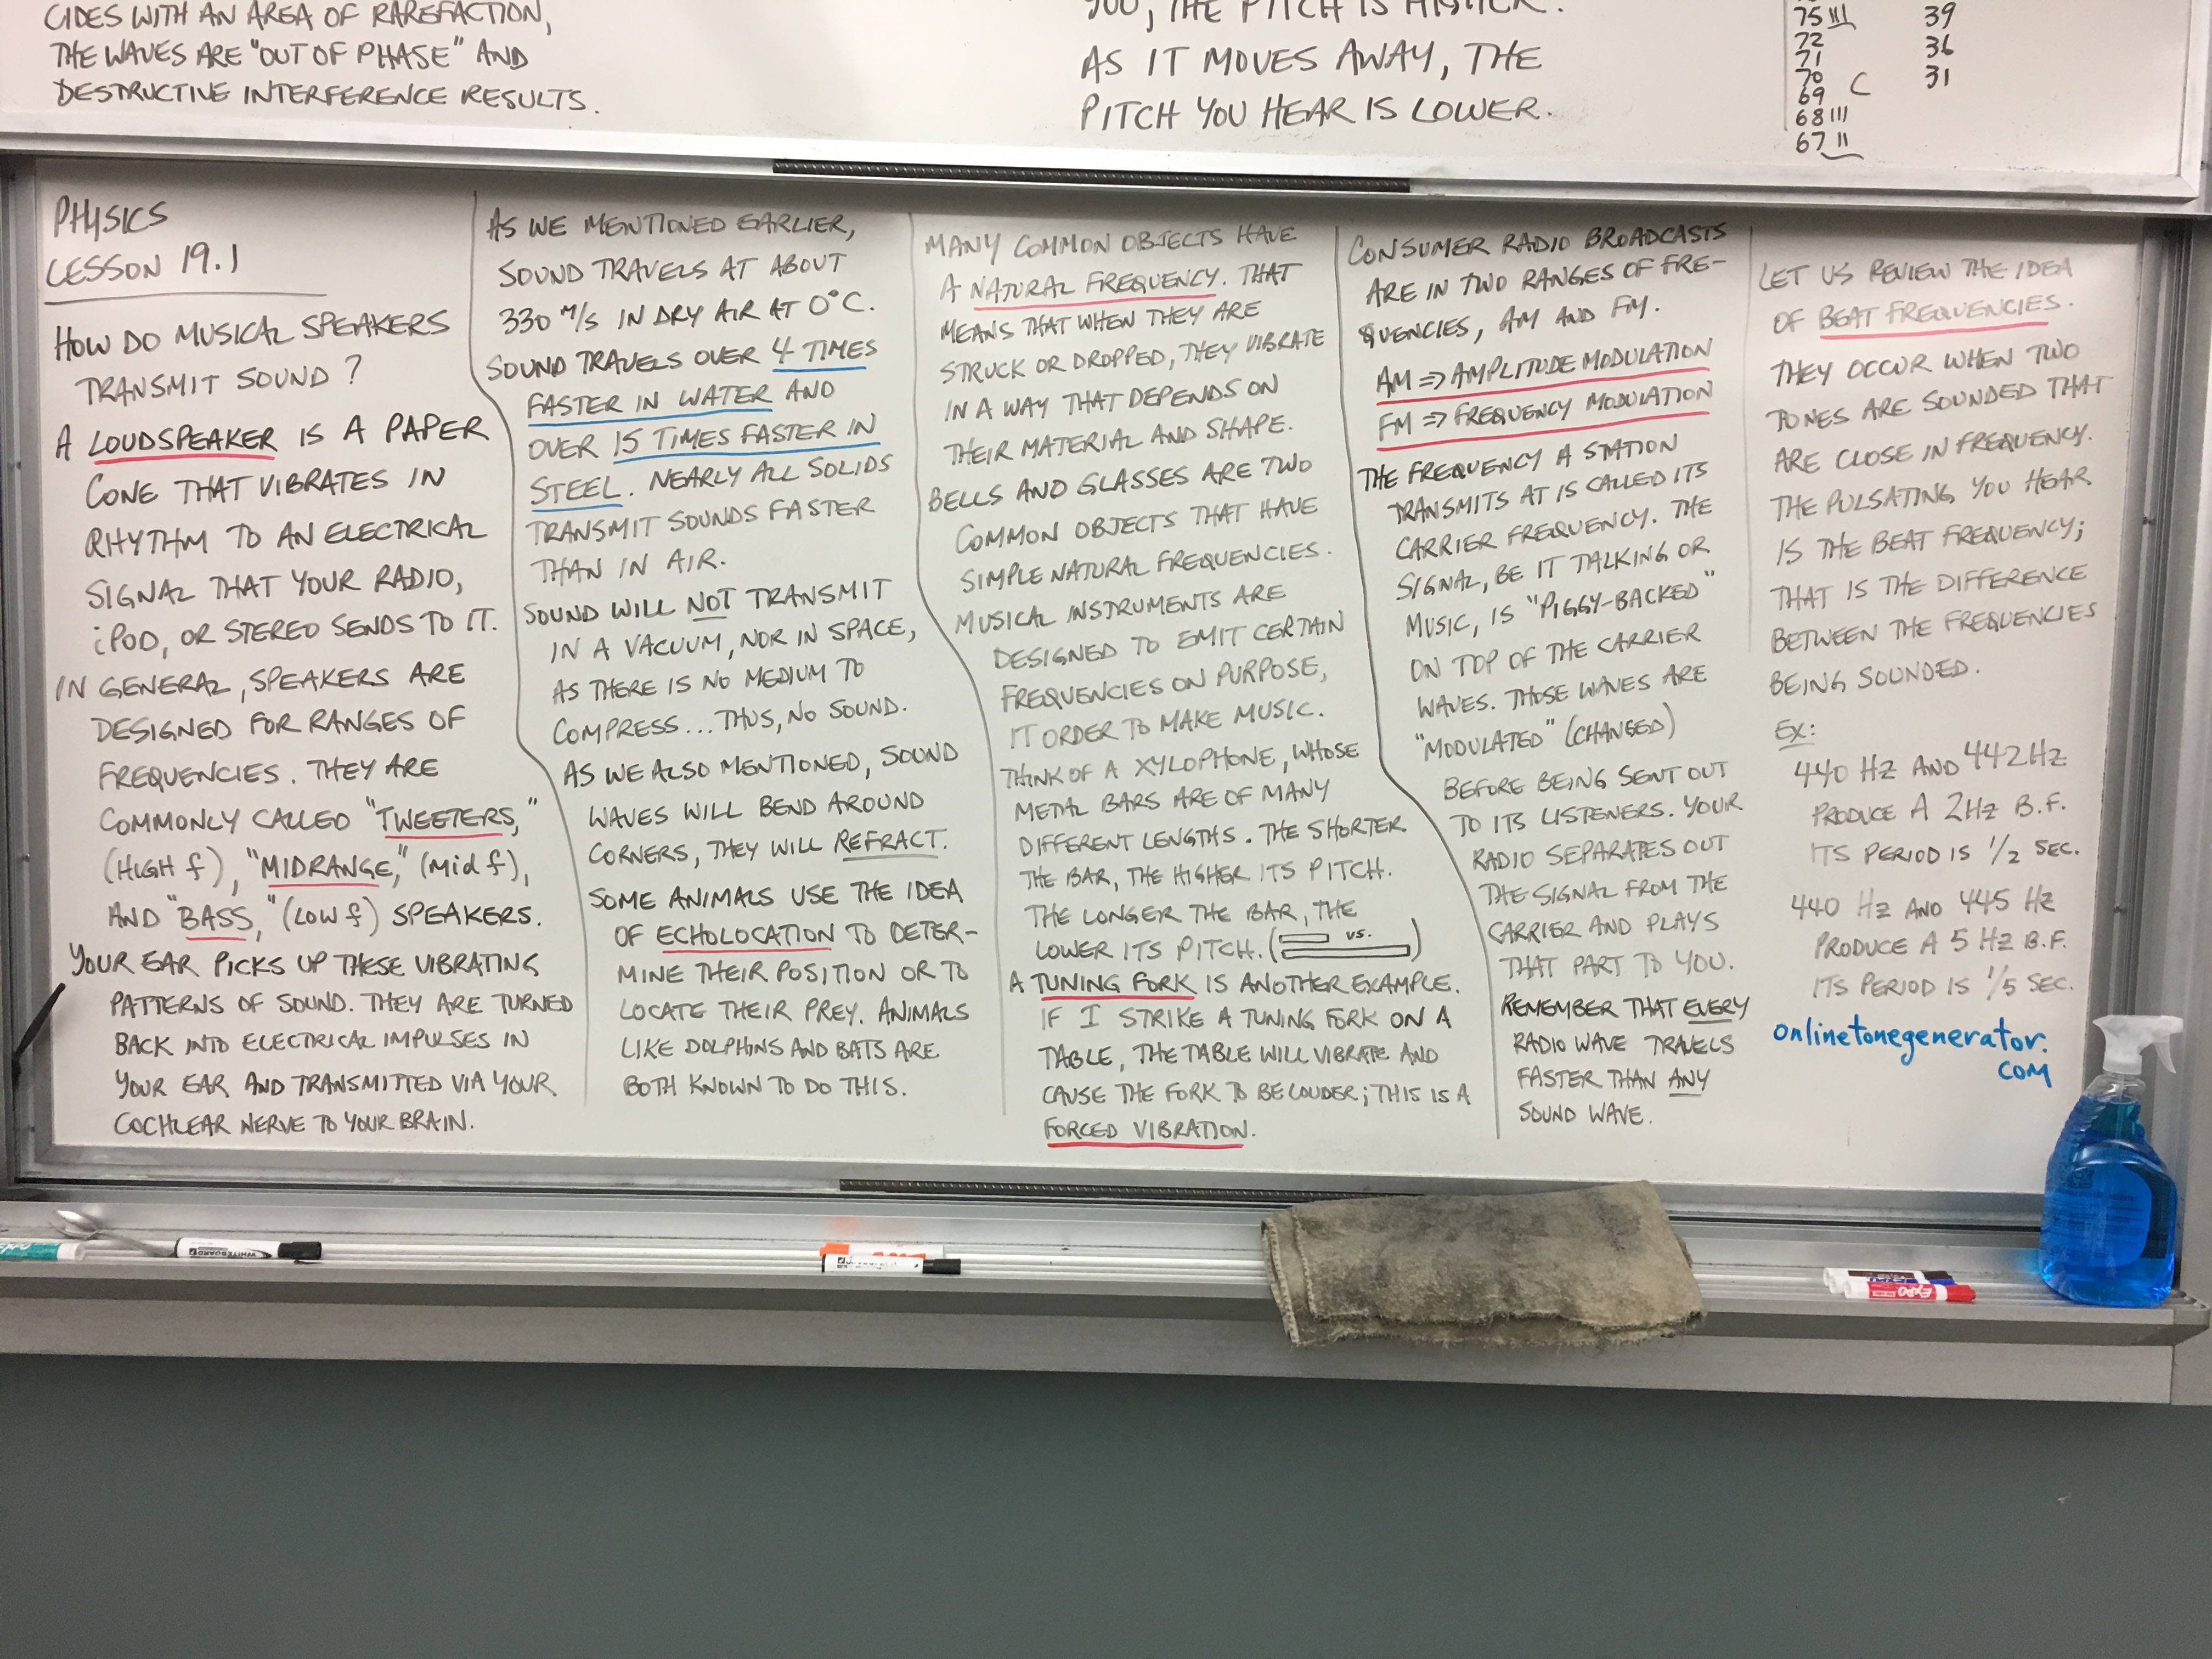 CIDES WITH AN AREA OF RAREFACTION,
THE WAVES ARE "OUT OF PHASE" AND
DESTRUCTIVE INTERFERENCE RESULTS.
YOU, THE PITCH IS HIGHER.
AS IT MOVES AWAY, THE
PITCH YOU HEAR IS LOWER.
75 III 39
72 36
71
70 C 31
69
68 III
67 II
PHYSICS
LESSON 19.1
HOW DO MUSICAL SPEAKERS
TRANSMIT SOUND?
A LOUDSPEAKER IS A PAPER
CONE THAT VIBRATES IN
RHYTHM TO AN ELECTRICAL
SIGNAL THAT YOUR RADIO,
iPOD, OR STEREO SENDS TO IT.
IN GENERAL, SPEAKERS ARE
DESIGNED FOR RANGES OF
FREQUENCIES. THEY ARE
COMMONLY CALLED "TWEETERS,"
(HIGH f), "MIDRANGE," (MID f),
AND "BASS," (LOW f) SPEAKERS.
YOUR EAR PICKS UP THESE VIBRATING
PATTERNS OF SOUND. THEY ARE TURNED
BACK INTO ELECTRICAL IMPULSES IN
YOUR EAR AND TRANSMITTED VIA YOUR
COCHLEAR NERVE TO YOUR BRAIN.
AS WE MENTIONED EARLIER,
SOUND TRAVELS AT ABOUT
330 m/s IN DRY AIR AT 0°C.
SOUND TRAVELS OVER 4 TIMES
FASTER IN WATER AND
OVER 15 TIMES FASTER IN
STEEL. NEARLY ALL SOLIDS
TRANSMIT SOUNDS FASTER
THAN IN AIR.
SOUND WILL NOT TRANSMIT
IN A VACUUM, NOR IN SPACE,
AS THERE IS NO MEDIUM TO
COMPRESS... THUS, NO SOUND.
AS WE ALSO MENTIONED, SOUND
WAVES WILL BEND AROUND
CORNERS, THEY WILL REFRACT.
SOME ANIMALS USE THE IDEA
OF ECHOLOCATION TO DETER-
MINE THEIR POSITION OR TO
LOCATE THEIR PREY. ANIMALS
LIKE DOLPHINS AND BATS ARE
BOTH KNOWN TO DO THIS.
MANY COMMON OBJECTS HAVE
A NATURAL FREQUENCY. THAT
MEANS THAT WHEN THEY ARE
STRUCK OR DROPPED, THEY VIBRATE
IN A WAY THAT DEPENDS ON
THEIR MATERIAL AND SHAPE.
BELLS AND GLASSES ARE TWO
COMMON OBJECTS THAT HAVE
SIMPLE NATURAL FREQUENCIES.
MUSICAL INSTRUMENTS ARE
DESIGNED TO EMIT CERTAIN
FREQUENCIES ON PURPOSE,
IT ORDER TO MAKE MUSIC.
THINK OF A XYLOPHONE, WHOSE
METAL BARS ARE OF MANY
DIFFERENT LENGTHS. THE SHORTER
THE BAR, THE HIGHER ITS PITCH.
THE LONGER THE BAR, THE
LOWER ITS PITCH. ( VS. )
A TUNING FORK IS ANOTHER EXAMPLE.
IF I STRIKE A TUNING FORK ON A
TABLE, THE TABLE WILL VIBRATE AND
CAUSE THE FORK TO BE LOUDER; THIS IS A
FORCED VIBRATION.
CONSUMER RADIO BROADCASTS
ARE IN TWO RANGES OF FRE-
QUENCIES, AM AND FM.
AM => AMPLITUDE MODULATION
FM => FREQUENCY MODULATION
THE FREQUENCY A STATION
TRANSMITS AT IS CALLED ITS
CARRIER FREQUENCY. THE
SIGNAL, BE IT TALKING OR
MUSIC, IS "PIGGY-BACKED"
ON TOP OF THE CARRIER
WAVES. THOSE WAVES ARE
"MODULATED" (CHANGED)
BEFORE BEING SENT OUT
TO ITS LISTENERS. YOUR
RADIO SEPARATES OUT
THE SIGNAL FROM THE
CARRIER AND PLAYS
THAT PART TO YOU.
REMEMBER THAT EVERY
RADIO WAVE TRAVELS
FASTER THAN ANY
SOUND WAVE.
LET US REVIEW THE IDEA
OF BEAT FREQUENCIES.
THEY OCCUR WHEN TWO
TONES ARE SOUNDED THAT
ARE CLOSE IN FREQUENCY.
THE PULSATING YOU HEAR
IS THE BEAT FREQUENCY;
THAT IS THE DIFFERENCE
BETWEEN THE FREQUENCIES
BEING SOUNDED.
EX:
440 Hz AND 442 Hz
PRODUCE A 2 Hz B.F.
ITS PERIOD IS 1/2 SEC.
440 Hz AND 445 Hz
PRODUCE A 5 Hz B.F.
ITS PERIOD IS 1/5 SEC.
onlinetonegenerator.
com
WHITEBOARD
EXPO